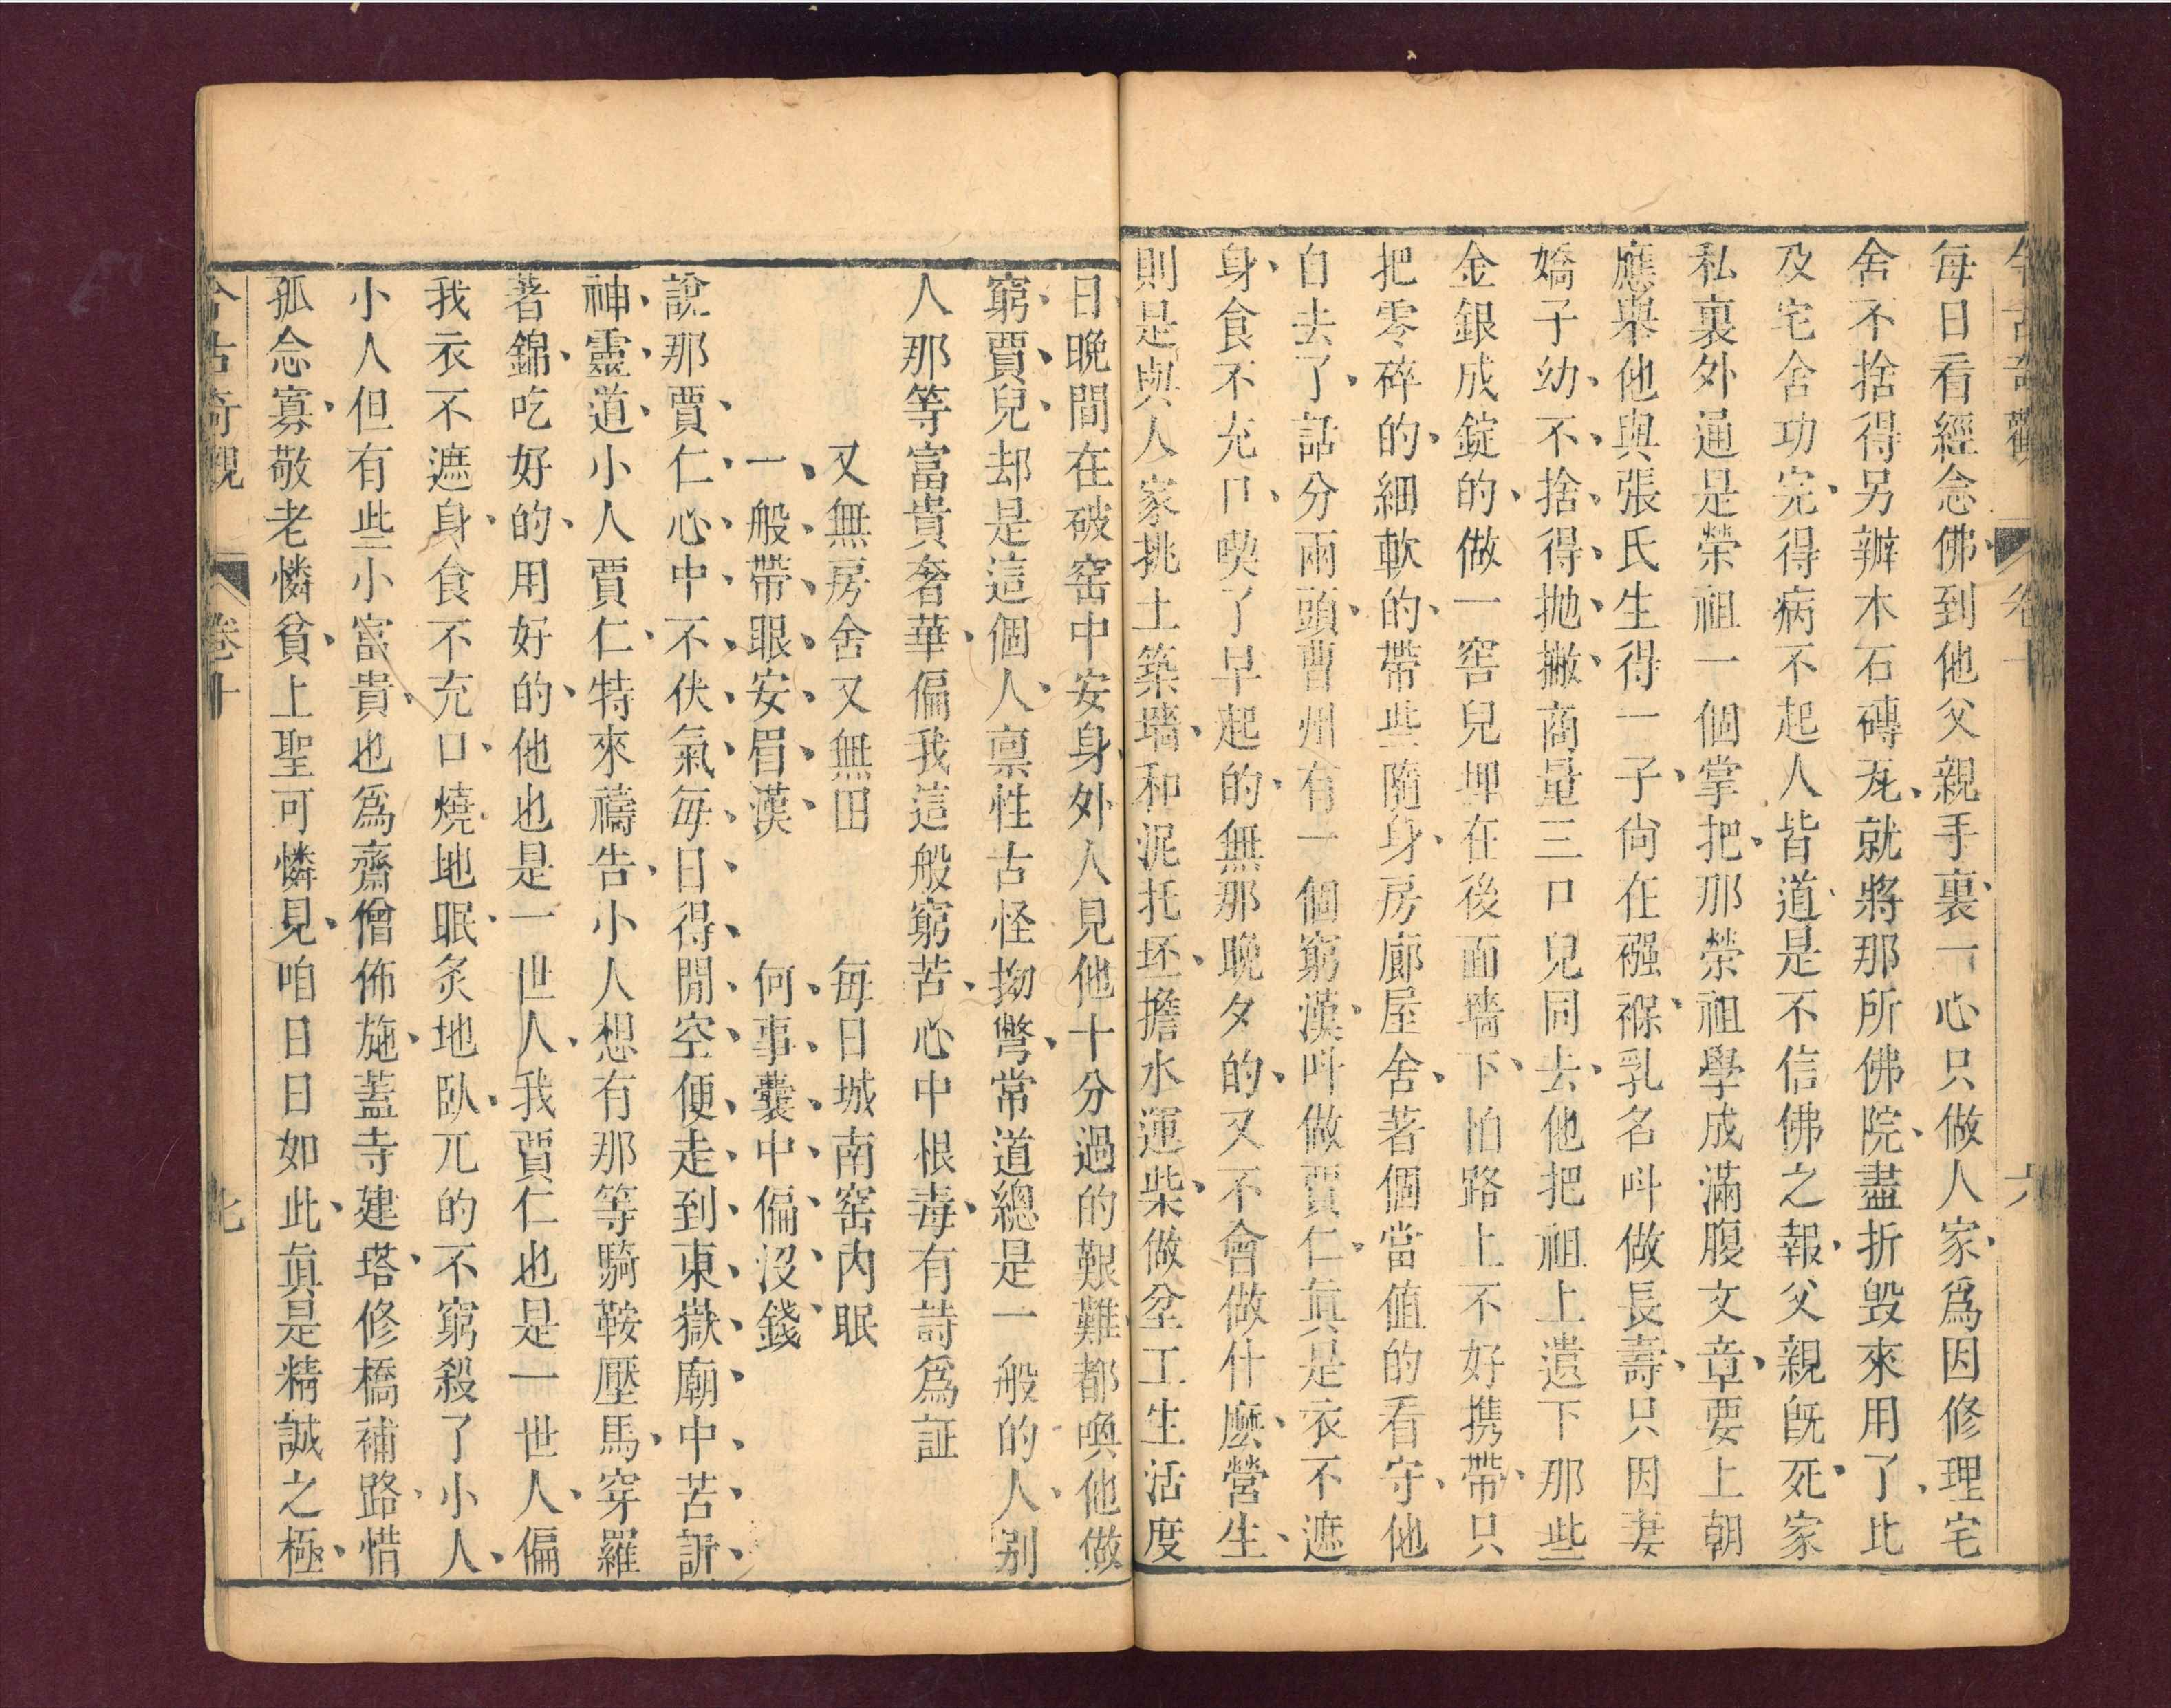 每日看經念佛、到他父親手裏、一心只做人家、爲因修理宅
舍不捨得另辦木石磚瓦、就將那所佛院、盡折毀來用了、此
及宅舍功完、得病不起人皆道、是不信佛之報、父親旣死、家
私裏外通是榮祖一個掌把、那榮祖學成滿腹文章、要上朝
應舉他與張氏生得一子、尙在襁褓、乳名叫做長壽、只因妻
嬌子幼、不捨得拋撇、商量三口兒同去、他把祖上遺下那些
金銀成錠的、做一窖兒埋在後面牆下、怕路上不好携帶、只
把零碎的、細軟的、帶些隨身、房廊屋舍、著個當値的看守、他
自去了、話分兩頭、曹州有一個窮漢、叫做賈仁、眞是衣不遮
身、食不充口、喫了早起的、無那晚夕的、又不會做什麽營生、
則是與人家挑土築墻、和泥托坯、擔水運柴、做坌工生活度
日、晚間在破窑中安身、外人見他十分過的艱難、都喚他做
窮、賈、兒、却是這個人、禀性古怪拗彆、常道總是一般的人、别
人那等富貴奢華、偏我這般窮苦、心中恨毒、有詩爲証
又無房舍又無田 每日城南窑內眠
一般帶眼安眉漢 何事囊中偏沒錢
說那賈仁心中不伏氣、每日得閒空便走到東嶽廟中苦訴、
神靈道、小人賈仁、特來禱告、小人想有那等騎鞍壓馬、穿羅
著錦、吃好的、用好的、他也是一世人、我賈仁也是一世人、偏
我衣不遮身、食不充口、燒地眠、炙地臥、兀的不窮殺了小人、
小人但有些小富貴、也爲齋僧佈施、蓋寺建塔、修橋補路、惜
孤念寡、敬老憐貧、上聖可憐見、咱日日如此、眞是精誠之極、
今古奇觀 卷十 七